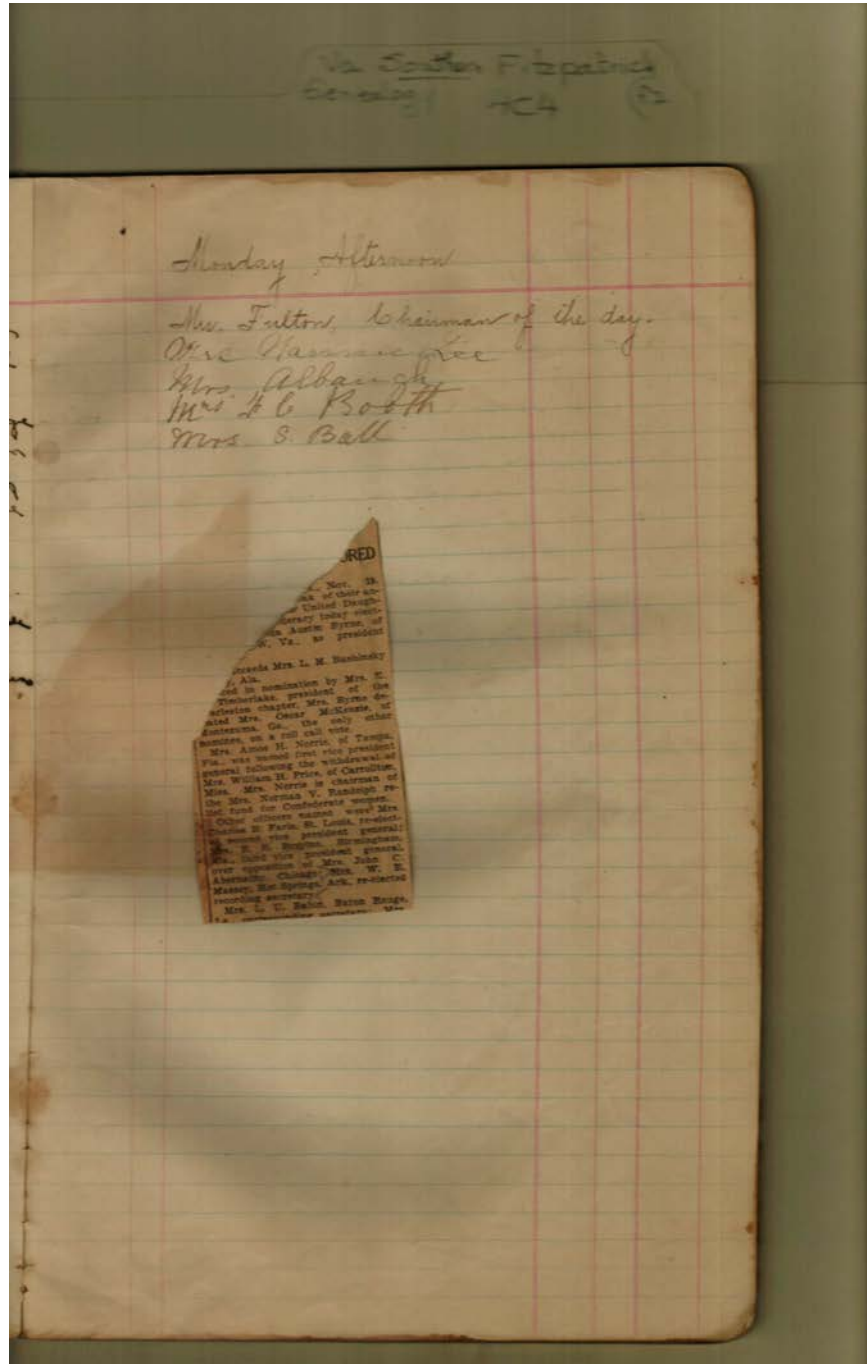 Va Southern Fitzpatrick
Genealogy AC4 F2
Monday Afternoon
Mrs. Fulton, Chairman of the day.
Mrs
Mrs. Albaugh
Mrs F C Booth
Mrs S. Ball
ORED
Nov. 19.
of their an-
United Daugh-
today elect-
Austin Byrne, of
Va., as president
Mrs. L. M. Bashinsky
Ala.
in nomination by Mrs. E.
Timberlake, president of the
chapter, Mrs. Byrne de-
Mrs. Oscar McKenzie, of
Montezuma, Ga., the only other
nominee, on a roll call vote.
Mrs. Amos H. Norris, of Tampa,
Fla., was named first vice president
general following the withdrawal of
Mrs. William H. Price, of Carrollton,
Miss. Mrs. Norris is chairman of
the Mrs. Norman V. Randolph re-
lief fund for Confederate women.
Other officers named were Mrs.
Charles B. Faris, St. Louis, re-elect-
second vice president general;
Birmingham,
third vice president general,
over opposition of Mrs. John C.
Abernathy, Chicago; Mrs. W. E.
Massey, Hot Springs, Ark., re-elected
recording secretary.
Mrs. L. U. Babin, Baton Rouge,
corresponding secretary; Mrs.